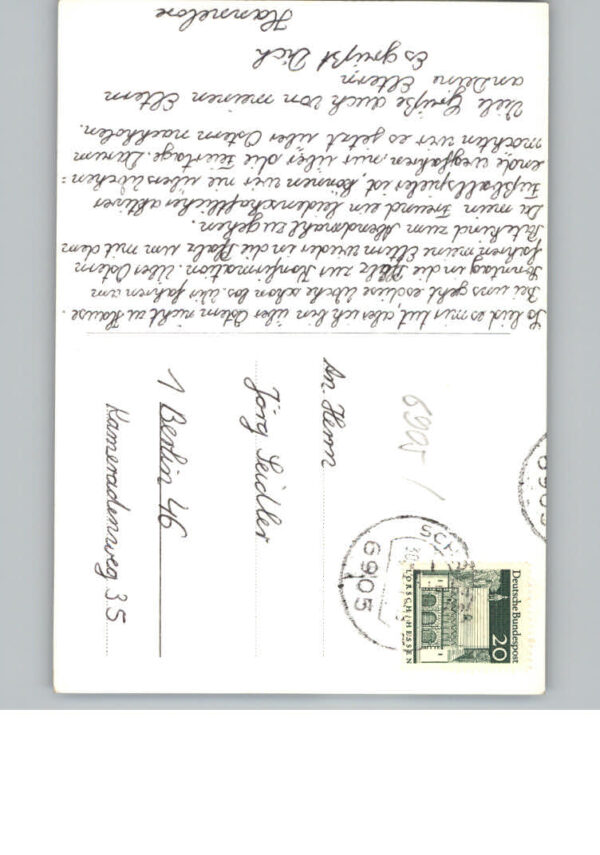 So leid es mir tut, aber ich bin über Ostern nicht zu Hause.
Bei uns geht es diese Woche schon los. Wir fahren am
Sonntag in die Pfalz zur Konfirmation. Über Ostern
fahren meine Eltern wieder in die Pfalz um mit dem
Patekind zum Abendmahl zu gehen.
Da mein Freund ein leidenschaftlicher aktiver
Fußballspieler ist, können wir nie übers Wochen=
ende wegfahren, nur über die Feiertage. Darum
möchten wir es jetzt über Ostern nachholen.
Viele Grüße auch von meinen Eltern
an Deine Eltern
Es grüßt Dich
Hannelore
An Herrn
Jörg Seidler
1 Berlin 46
Kameradenweg 35
6905
6905
SCH
6905
Deutsche Bundespost
20
LORSCH/HESSEN